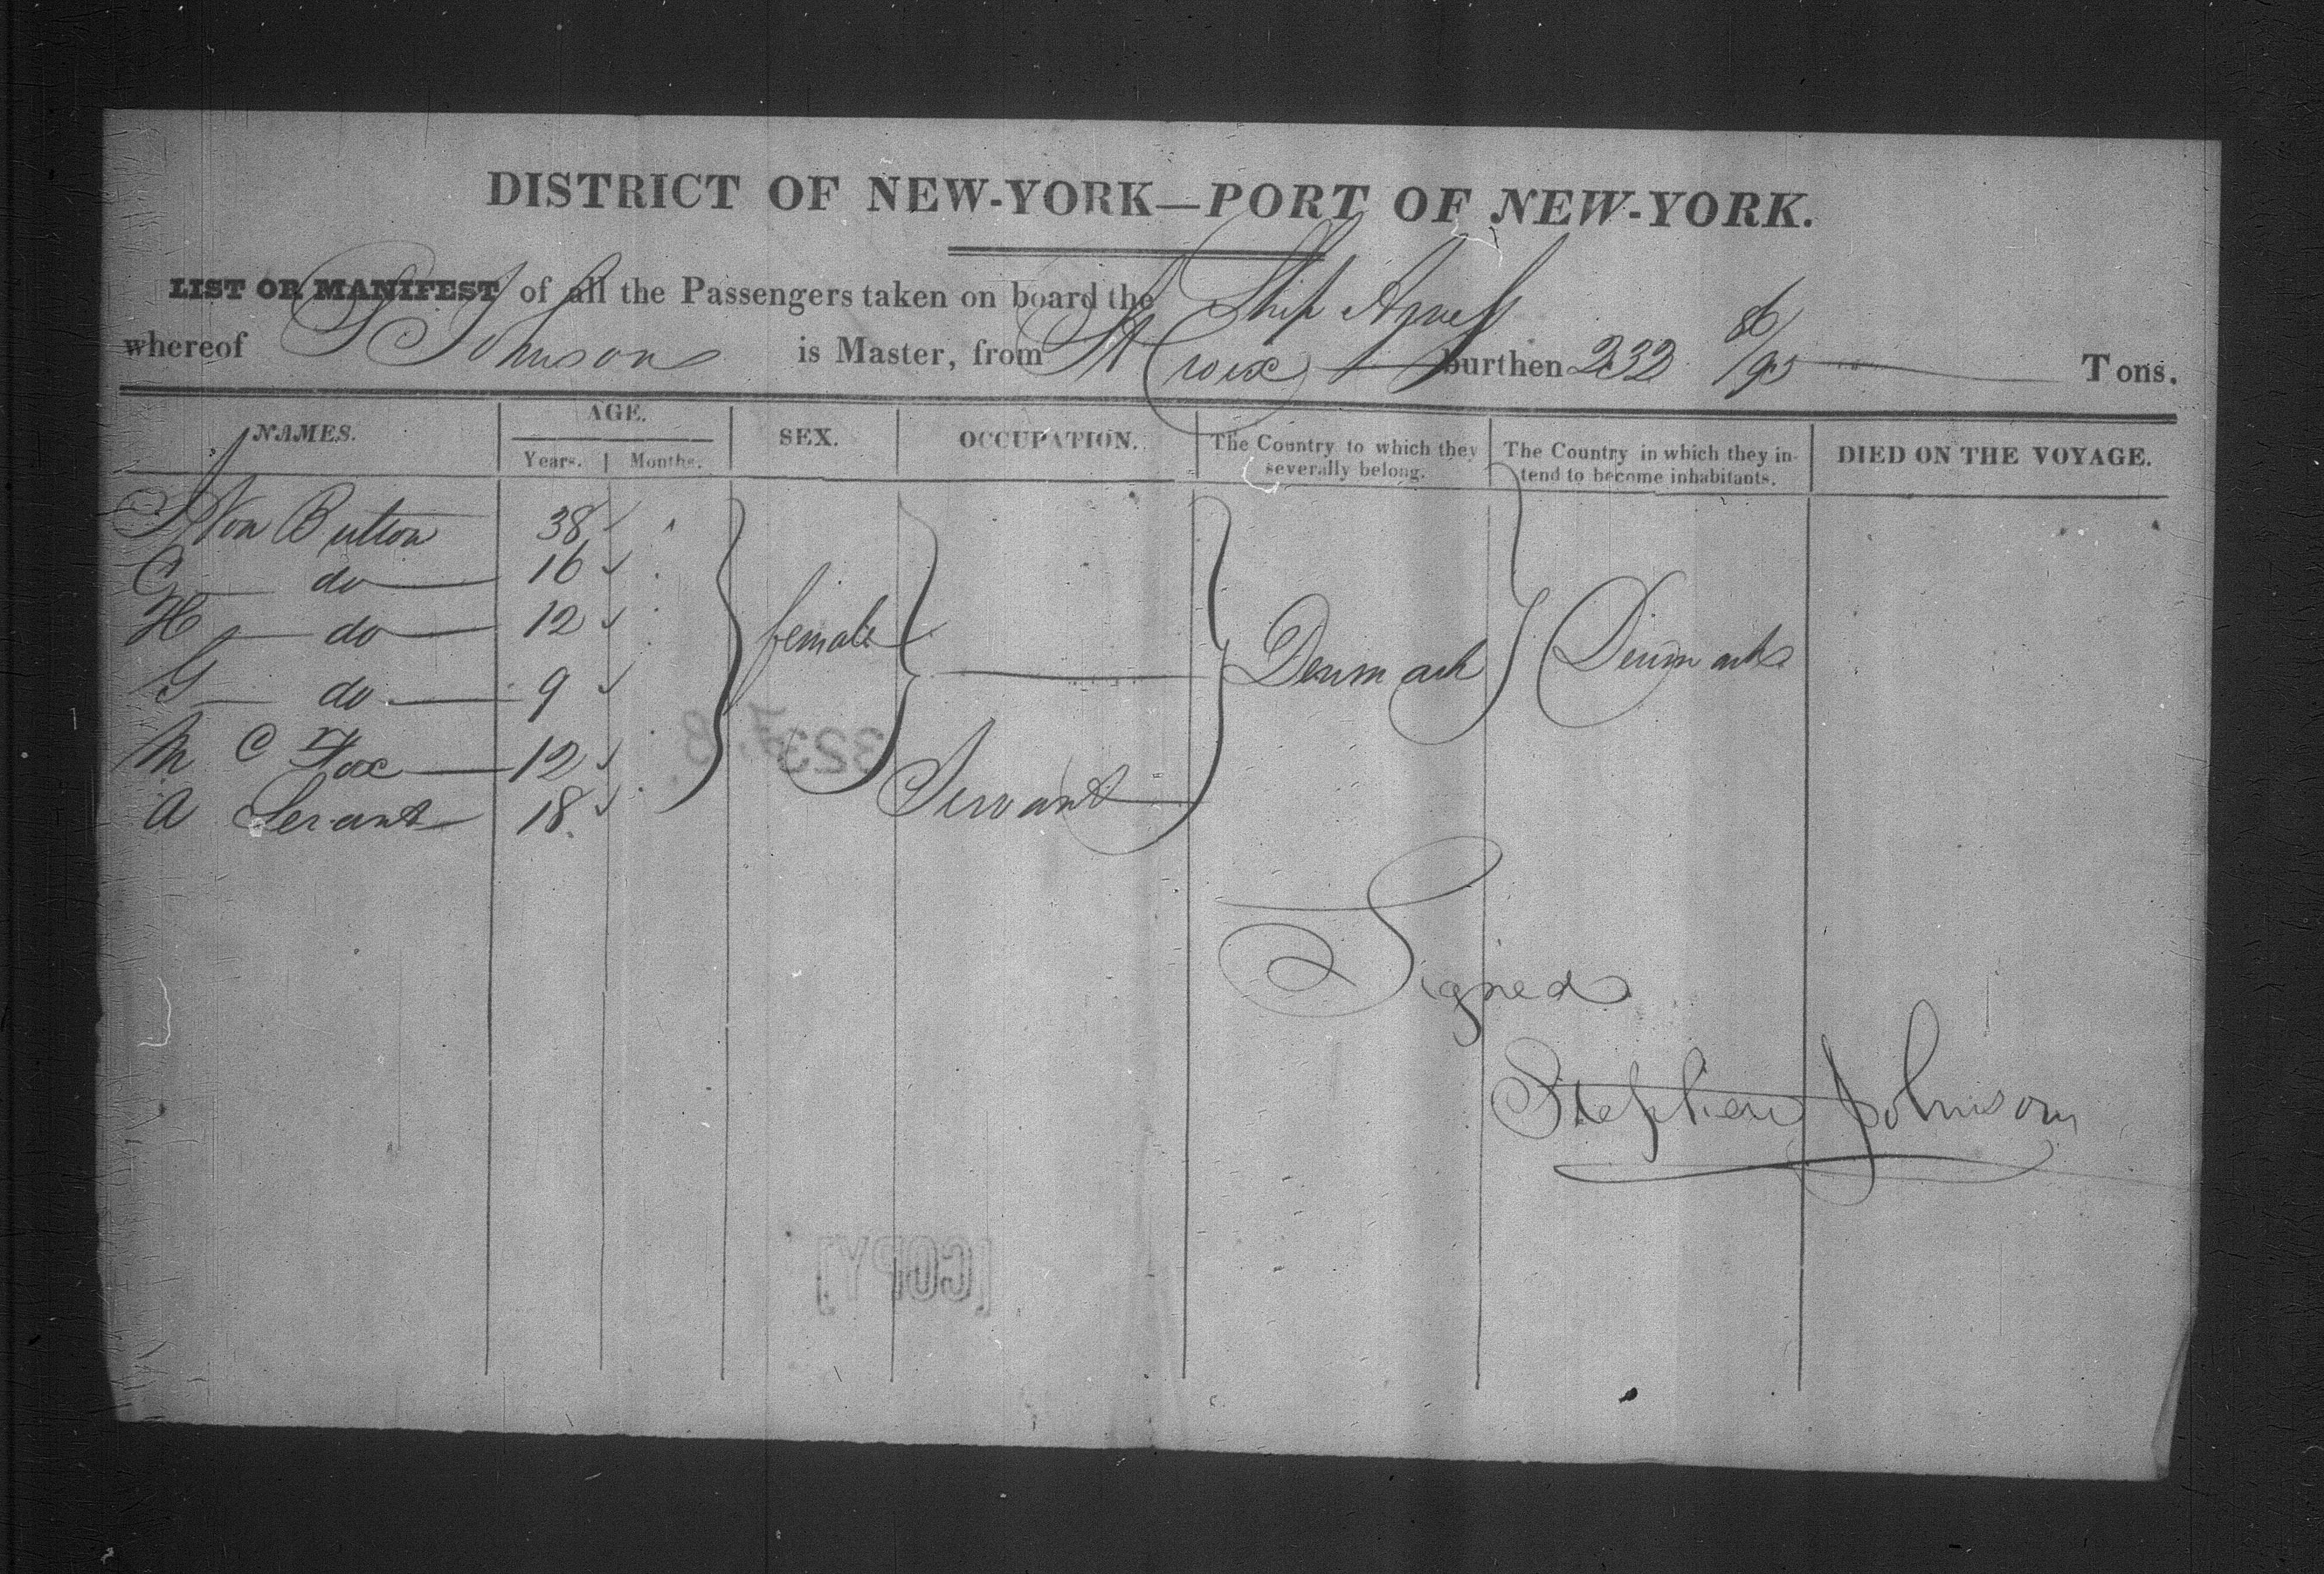 DISTRICT OF NEW-YORK—PORT OF NEW-YORK.
LIST OR MANIFEST of all the Passengers taken on board the Ship Agnes
whereof S Johnson is Master, from St Croix burthen 232 86/95 Tons.
NAMES. AGE. SEX. OCCUPATION. The Country to which they severally belong. The Country in which they intend to become inhabitants. DIED ON THE VOYAGE.
Years. Months.
Von Button 38
C do 16
H do 12
G do 9
female Denmark Denmark
M C Fox 12
A Servant 18 Servant
323 F. 8.
Signed
Stephen Johnson
[COPY]